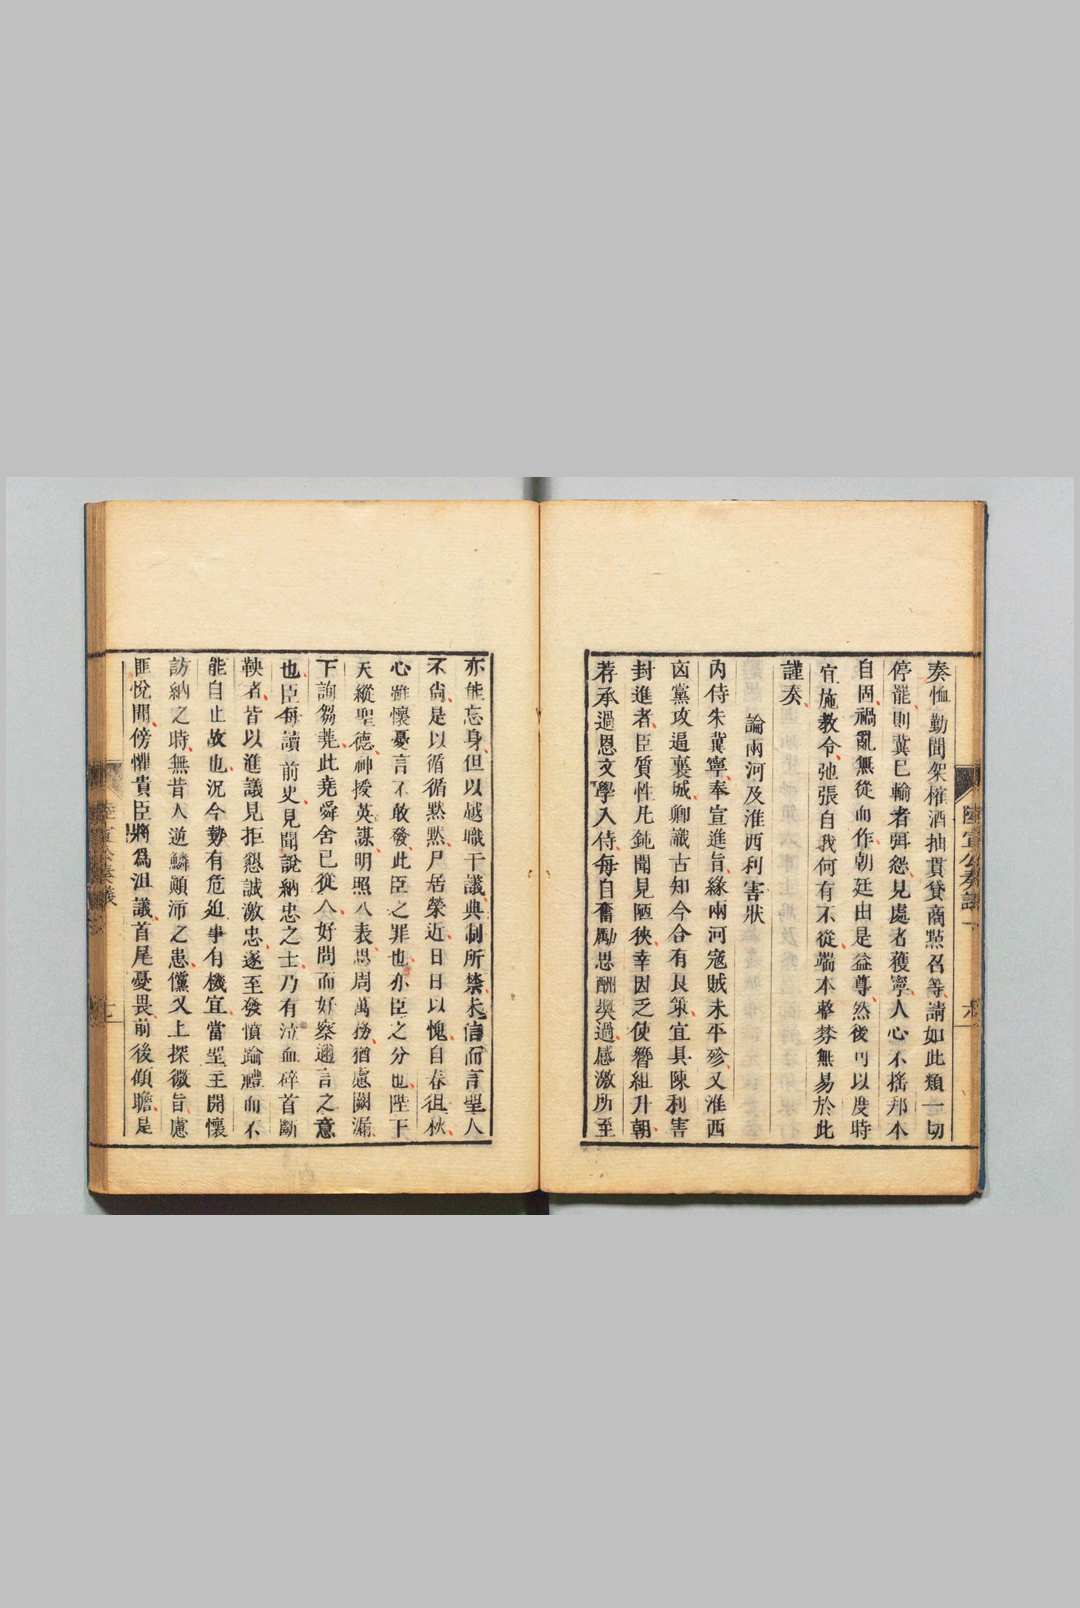 奏恤勤間架榷酒抽貫貸商㸃召等請如此類一切
停罷則冀巳輸者弭怨見處者獲寧人心不揺邦本
自固禍亂無從而作朝廷由是益尊然後可以度時
宜施教令弛張自我何有不從端本整棼無易於此
謹奏
論兩河及淮西利害狀
内侍朱冀寧奉宣進旨緣兩河寇賊未平殄又淮西
㐫黨攻逼襄城卿識古知今合有良策宜具陳利害
封進者臣質性凡鈍聞見陋狹幸因乏使簪組升朝
荐承過恩文學入侍每自奮勵思酬奬過感激所至
亦能忘身但以越職干議典制所禁未信而言聖人
不尚是以循循黙黙尸居榮近日日以愧自春徂秋
心雖懷憂言不敢發此臣之罪也亦臣之分也陛下
天縱聖德神授英謀明照八表思周萬務猶慮闕漏
下詢芻蕘此堯舜舍己從人好問而好察邇言之意
也臣每讀前史見聞說納忠之士乃有泣血碎首斷
鞅者皆以進議見拒懇誠激忠遂至發憤踰禮而不
能自止故也況今勢有危迫事有機宜當聖主開懷
訪納之時無昔人逆鱗顛沛之患儻又上探微旨慮
匪悅聞傍懼貴臣將為沮議首尾憂畏前後傾瞻是
陸宣公奏議
六
七